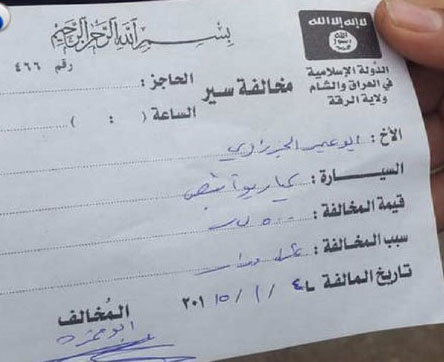 بسم الله الرحمن الرحيم
لا إله إلا الله
الله
رسول
محمد
الدولة الإسلامية
في العراق والشام
ولاية الرقة
رقم ٤٦٦
مخالفة سير
الحاجز :
الساعة : ( : )
الأخ : ابو عمير الجزراوي
السيارة : كيا ريو ابيض
قيمة المخالفة : ٥٠٠
سبب المخالفة :
تاريخ المالفة ٤ / ١ / ٢٠١٥
المُخالف
ابو حمزه